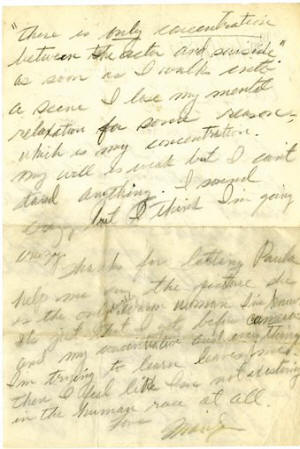 "there is only concentration
between the actor and suicide"
as soon as I walk into
a scene I lose my mental
relaxation for some reason,
which is my concentration.
my will is weak but I can't
stand anything. I sound
crazy but I think I'm going
crazy.
Thanks for letting Paula
help me on the picture she
is the only warm woman I've known
It's just that I get before camera
and my concentration and everything
I'm trying to learn leaves me.
then I feel like I'm not existing
in the human race at all.
Love
Marilyn